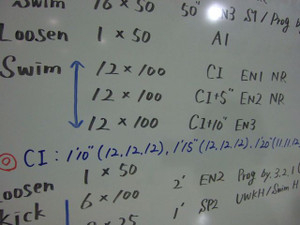 Swim 16 x 50 50" EN3 S1 / Prog by
Loosen 1 x 50 A1
Swim 12 x 100 CI EN1 NR
12 x 100 CI+5" EN2 NR
12 x 100 CI+10" EN3
◎ CI : 1'10" (12, 12, 12), 1'15" (12, 12, 12), 1'20" (11, 11, 12
Loosen 1 x 50
Kick 6 x 100 2' EN2 Prog by 3.2.1 (
8 x 25 1' SP2 UWKH / Swim H